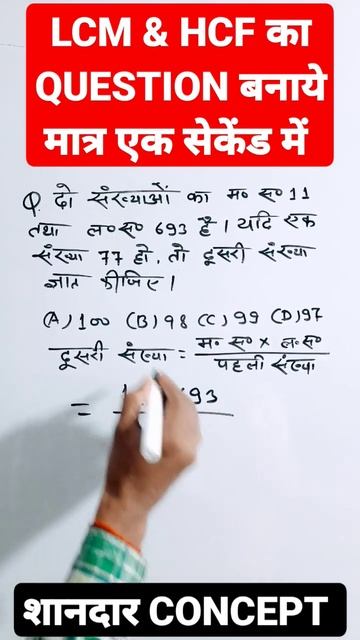 LCM & HCF का
QUESTION बनाये
मात्र एक सेकेंड में
Q. दो संख्याओं का म० स० 11
तथा ल०स० 693 है। यदि एक
संख्या 77 हो, तो दूसरी संख्या
ज्ञात कीजिए।
(A) 100 (B) 98 (C) 99 (D) 97
दूसरी संख्या = म० स० × ल०स०
पहली संख्या
=
शानदार CONCEPT